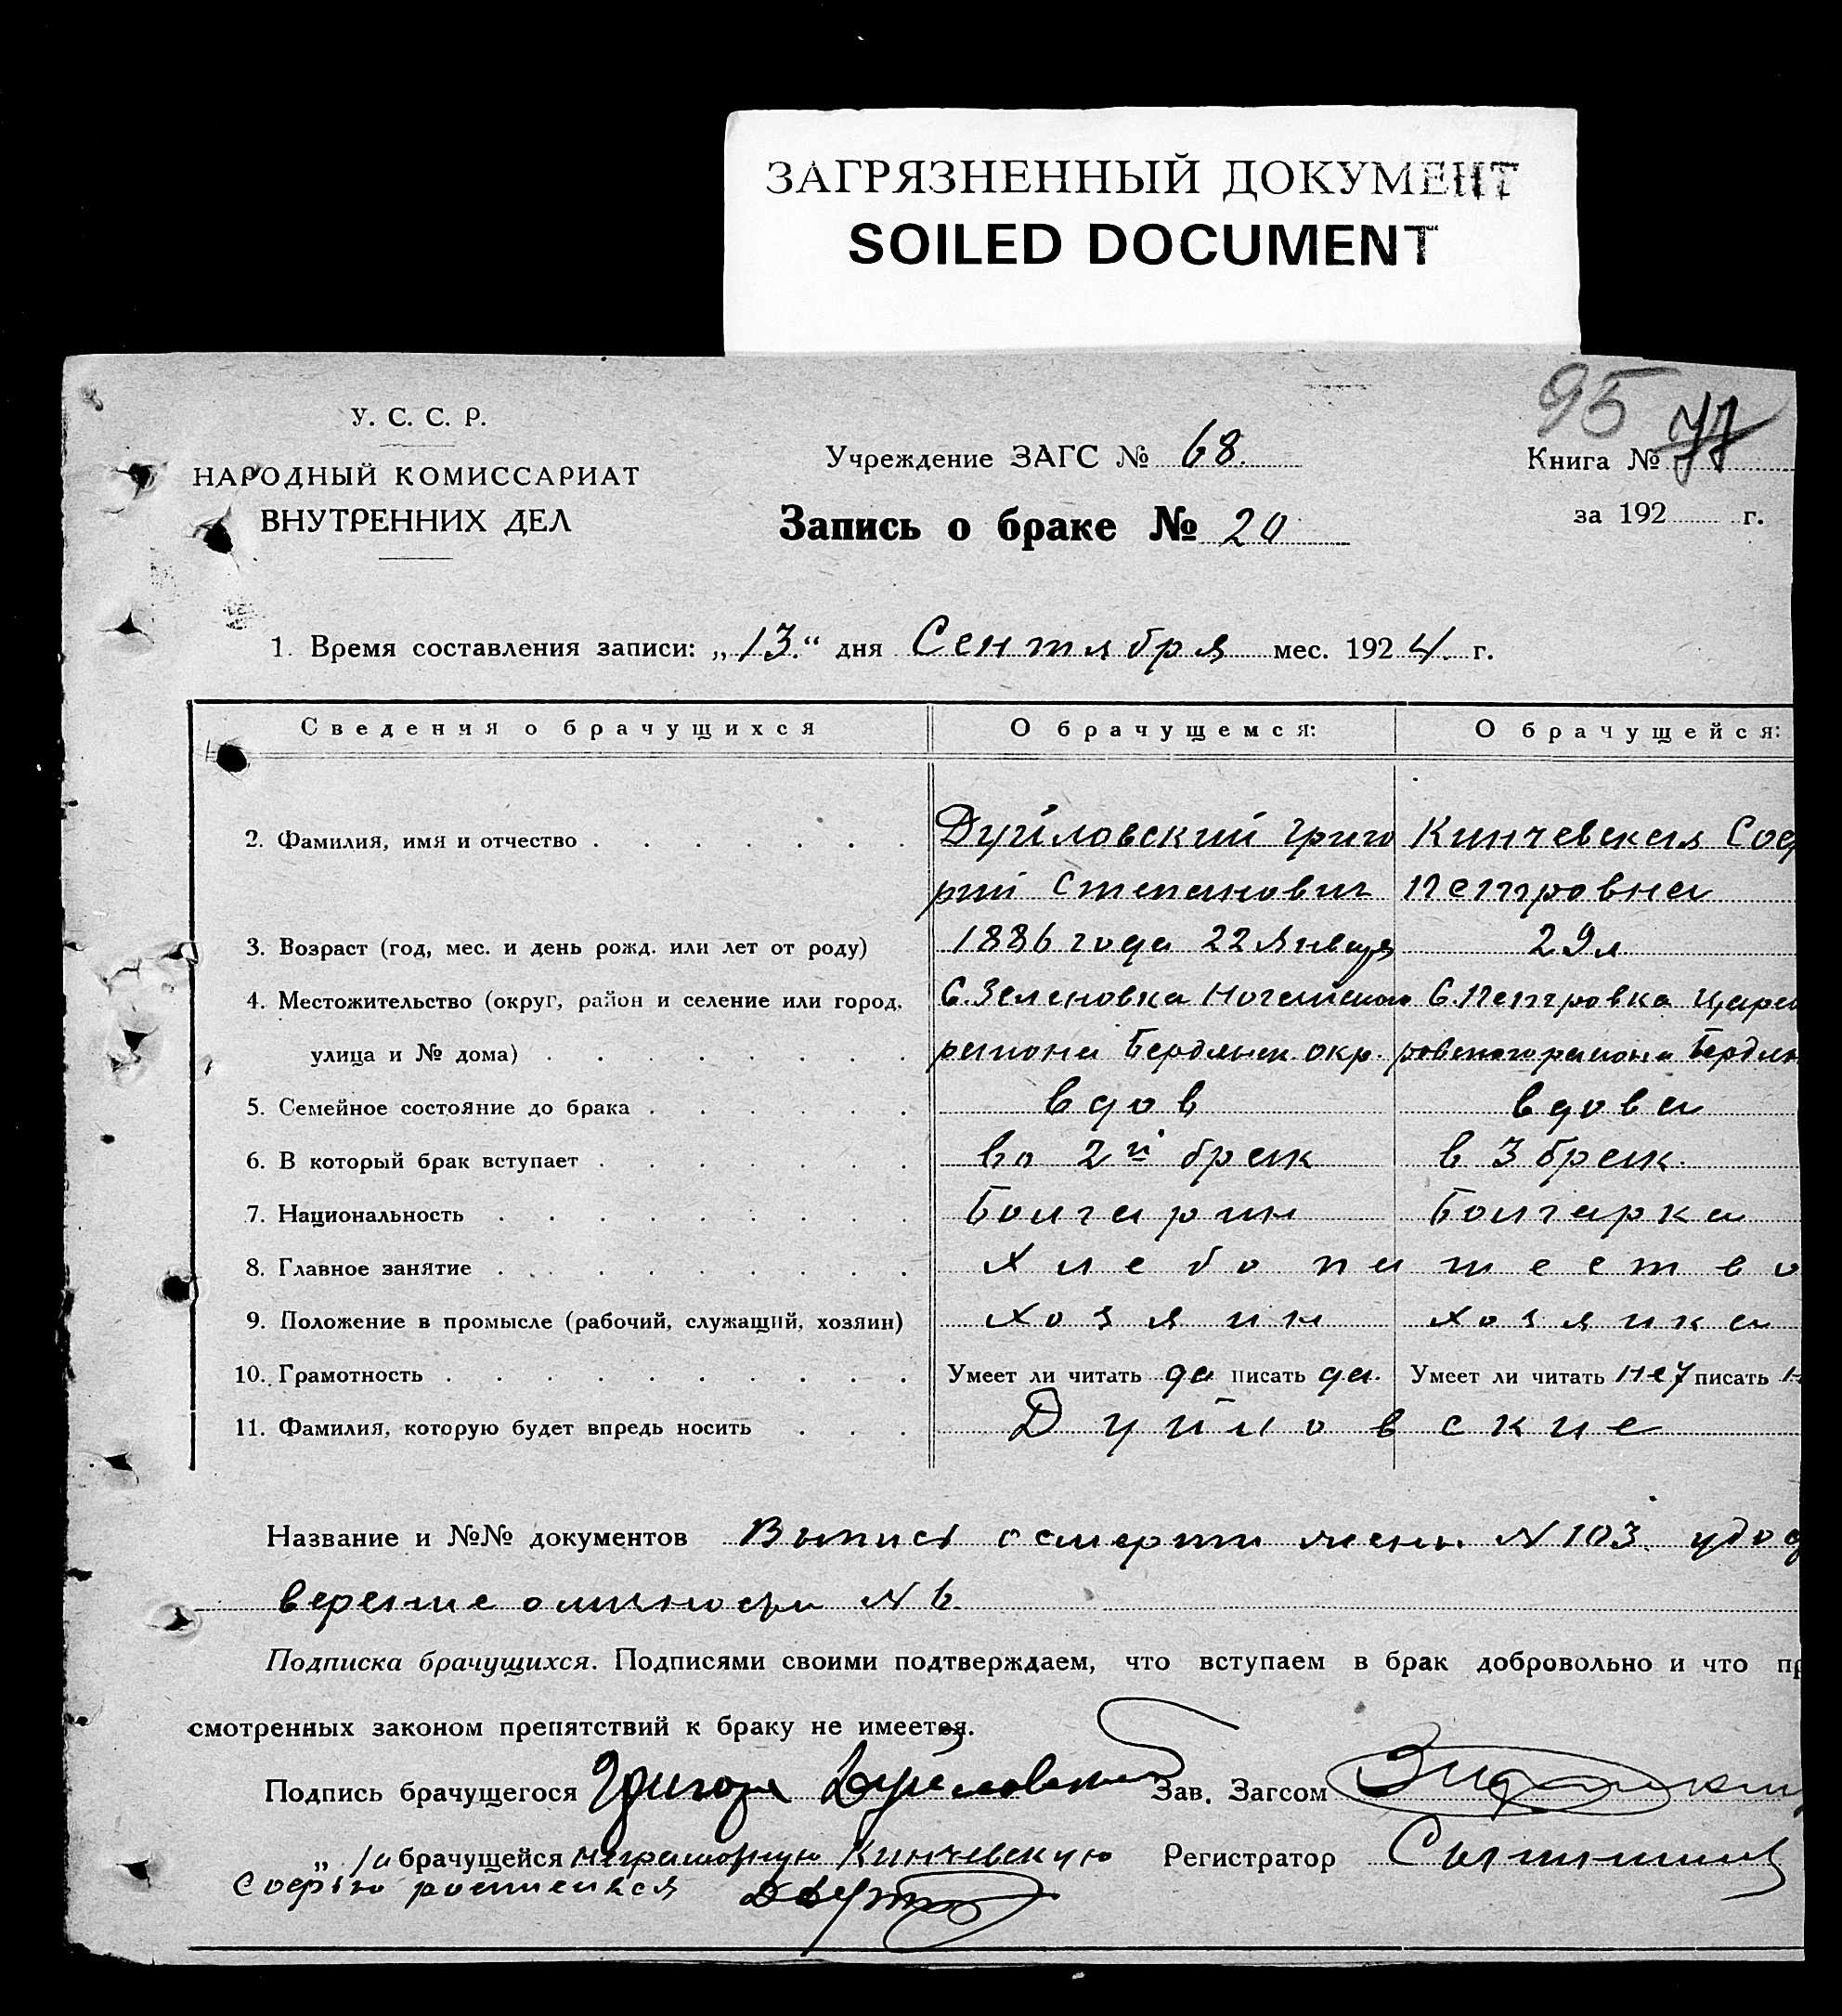 ЗАГРЯЗНЕННЫЙ ДОКУМЕНТ
SOILED DOCUMENT
95
У. С. С. Р.
НАРОДНЫЙ КОМИССАРИАТ
ВНУТРЕННИХ ДЕЛ
Учреждение ЗАГС № 68.
Запись о браке № 20
Книга № 77
за 192 г.
1. Время составления записи: „13.“ дня Сентября мес. 1924. г.
Сведения о брачущихся О брачущемся: О брачущейся:
2. Фамилия, имя и отчество Дуйловский Григо Кинчевская Соф
рий Степанович Петровна
3. Возраст (год, мес. и день рожд. или лет от роду) 1886 года 22 Января 29 л
4. Местожительство (округ, район и селение или город, С. Зеленовка Ногайского С. Петровка Царео
улица и № дома) района Бердянск. окр. ровского района Бердян
5. Семейное состояние до брака вдов вдова
6. В который брак вступает во 2й брак в 3 брак.
7. Национальность Болгарин Болгарка
8. Главное занятие Хлебопашество
9. Положение в промысле (рабочий, служащий, хозяин) хозяин хозяйка
10. Грамотность Умеет ли читать да писать да. Умеет ли читать нет писать н
11. Фамилия, которую будет впредь носить Дуйловские
Название и №№ документов Выпись о смерти жены N 103. удос
верение о личности N 6.
Подписка брачущихся. Подписями своими подтверждаем, что вступаем в брак добровольно и что пр
смотренных законом препятствий к браку не имеется.
Подпись брачущегося Григори Дуйловский Зав. Загсом
„ за брачущейся неграмотную Кинчевскую Регистратор
Софью росписался